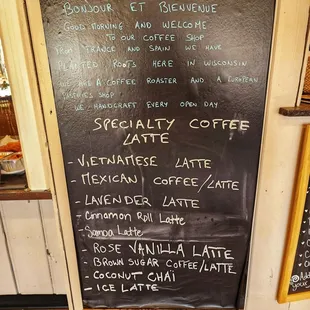 BONJOUR ET BIENVENUE
GOOD MORNING AND WELCOME
TO OUR COFFEE SHOP
FROM FRANCE AND SPAIN WE HAVE
PLANTED ROOTS HERE IN WISCONSIN
WE ARE A COFFEE ROASTER AND A EUROPEAN
SHOP
WE HANDCRAFT EVERY OPEN DAY
SPECIALTY COFFEE
LATTE
- VIETNAMESE LATTE
- MEXICAN COFFEE/LATTE
- LAVENDER LATTE
- Cinnamon Roll Latte
- Samoa Latte
- ROSE VANILLA LATTE
- BROWN SUGAR COFFEE/LATTE
- COCONUT CHAI
- ICE LATTE